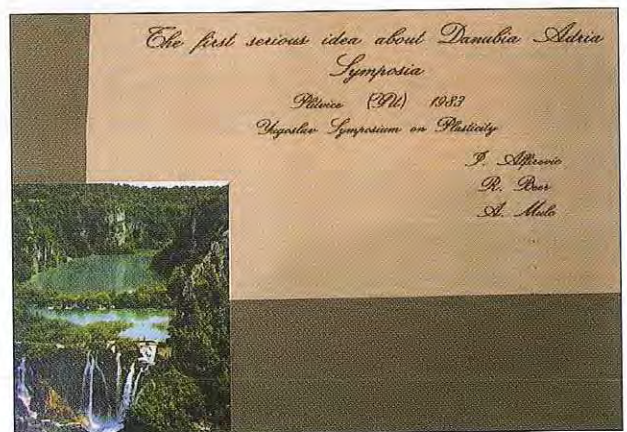 The first serious idea about Danubia Adria
Symposia
Plitvice (YU) 1983
Yugoslav Symposium on Plasticity
I. Alfirevic
R. Beer
A. Mulc